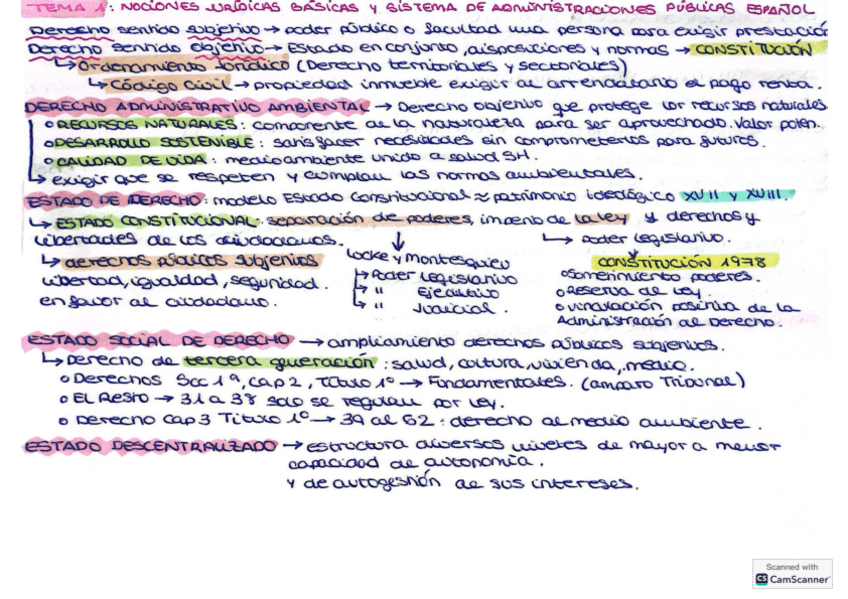 TEMA 1: NOCIONES JURÍDICAS BÁSICAS Y SISTEMA DE ADMINISTRACIONES PÚBLICAS ESPAÑOL
Derecho sentido subjetivo → poder público o facultad una persona para exigir prestación
Derecho sentido objetivo → Estado en conjunto, disposiciones y normas → CONSTITUCIÓN
↳ Ordenamiento Jurídico (Derecho territoriales y sectoriales)
↳ Código Civil → propiedad inmueble exigir al arrendatario el pago renta.
DERECHO ADMINISTRATIVO AMBIENTAL → Derecho objetivo que protege los recursos naturales
o RECURSOS NATURALES: componente de la naturaleza para ser aprovechado. Valor poten.
o DESARROLLO SOSTENIBLE: satisfacer necesidades sin comprometerlos para futuros.
o CALIDAD DE VIDA: medioambiente unido a salud SH.
↳ exigir que se respeten y cumplan las normas ambientales.
ESTADO DE DERECHO: modelo Estado Constitucional ≈ patrimonio ideológico XVII y XVIII.
↳ ESTADO CONSTITUCIONAL: separación de poderes, imperio de la ley y derechos y
libertades de los ciudadanos. ↳ poder legislativo.
↳ derechos públicos subjetivos
libertad, igualdad, seguridad.
en favor al ciudadano.
Locke y Montesquieu
→ Poder Legislativo
→ " Ejecutivo
→ " Judicial.
CONSTITUCIÓN 1978
o Sometimiento poderes.
o Reserva de Ley.
o Vinculación positiva de la
Administración al Derecho.
ESTADO SOCIAL DE DERECHO → ampliamiento derechos públicos subjetivos.
↳ Derecho de tercera generación: salud, cultura, vivienda, medio.
o Derechos Scc 1ª, Cap 2, Título 1º → Fundamentales. (amparo Tribunal)
o El Resto → 31 a 38 solo se regulan por Ley.
o Derecho Cap 3 Título 1º → 39 al 52: derecho al medio ambiente.
ESTADO DESCENTRALIZADO → estructura diversos niveles de mayor a menor
capacidad de autonomía.
y de autogestión de sus intereses.
Scanned with
CS CamScanner